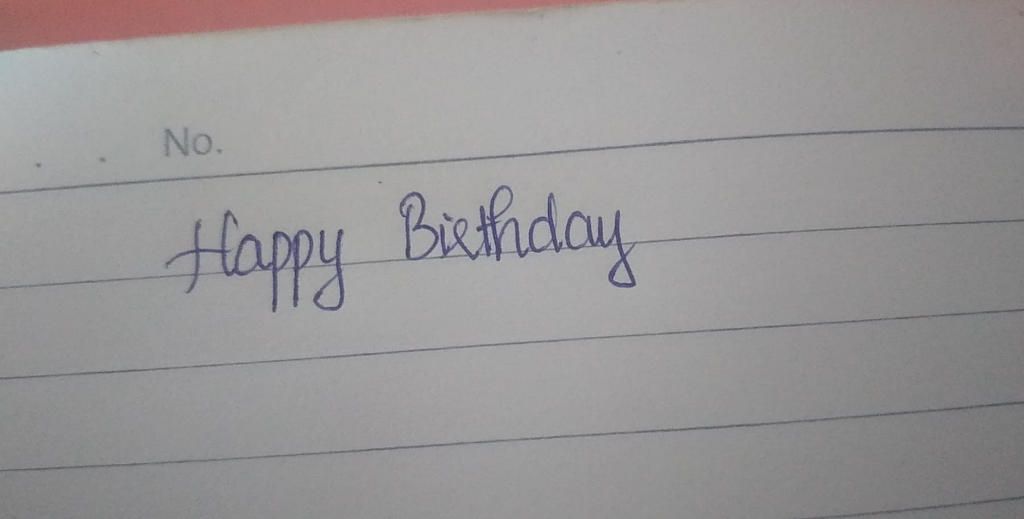 No.
Happy Birthday